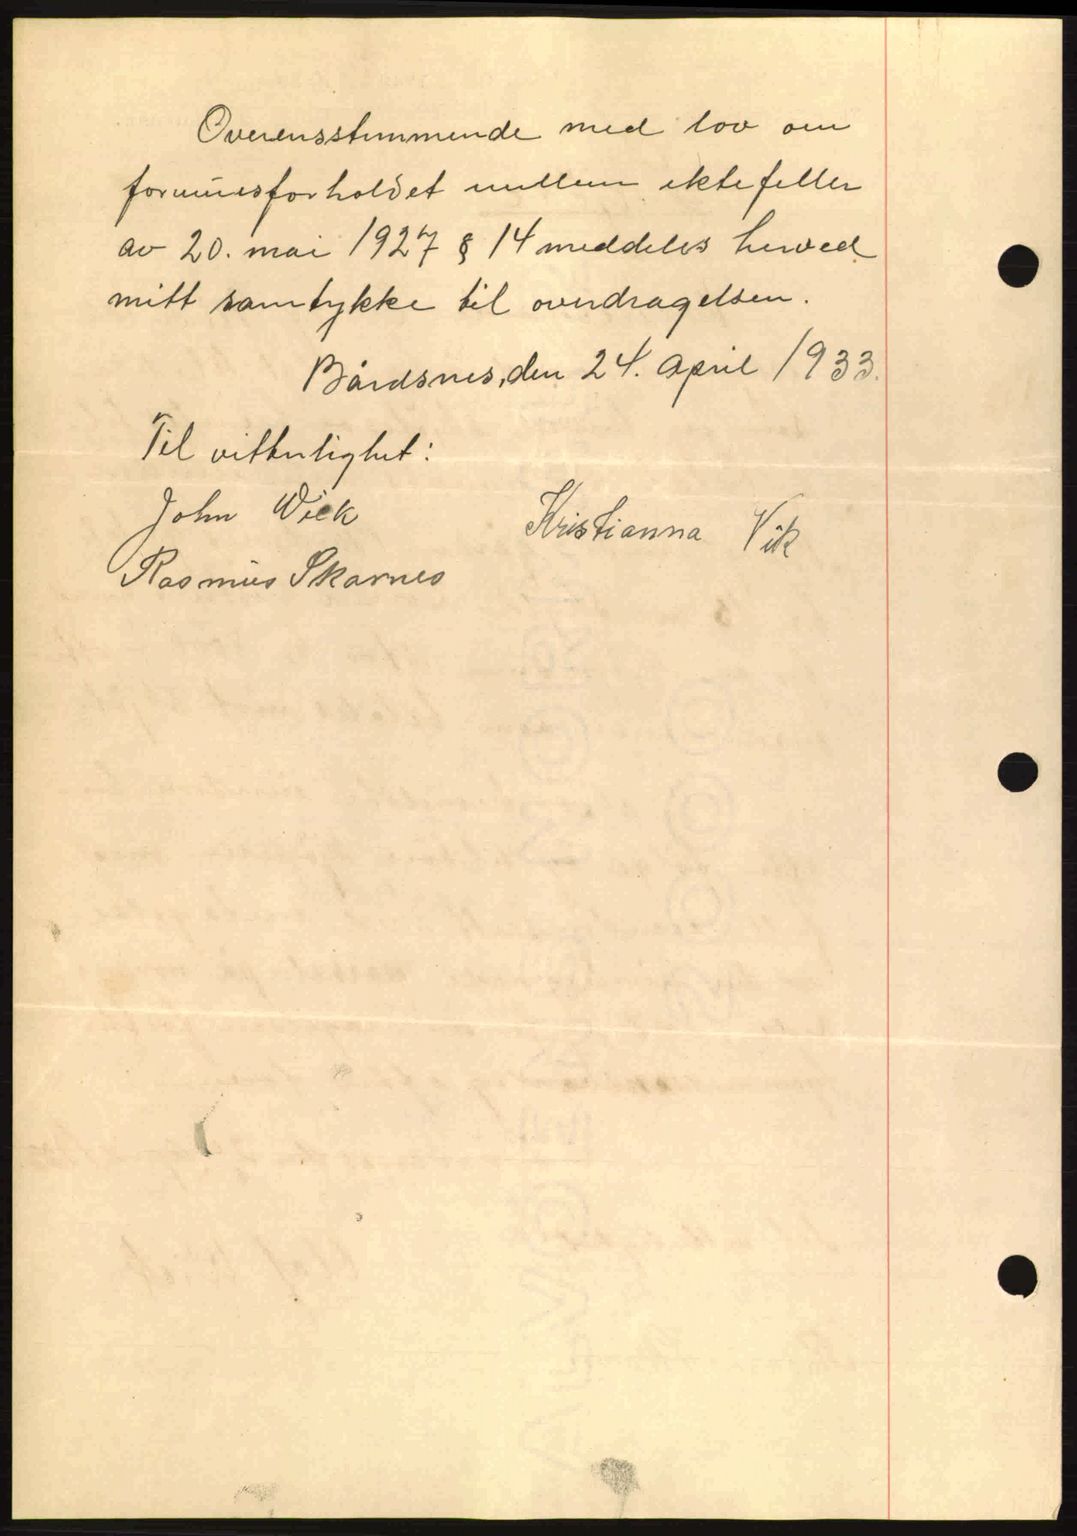 Overensstemmende med lov om
formuesforholdet mellem ektefeller
av 20. mai 1927 § 14 meddeles herved
mitt samtykke til overdragelsen.
Bårdsnes, den 24. april 1933.
Til vitterlighet:
John Wiek
Kristianna Vik
Rasmus Skarnes